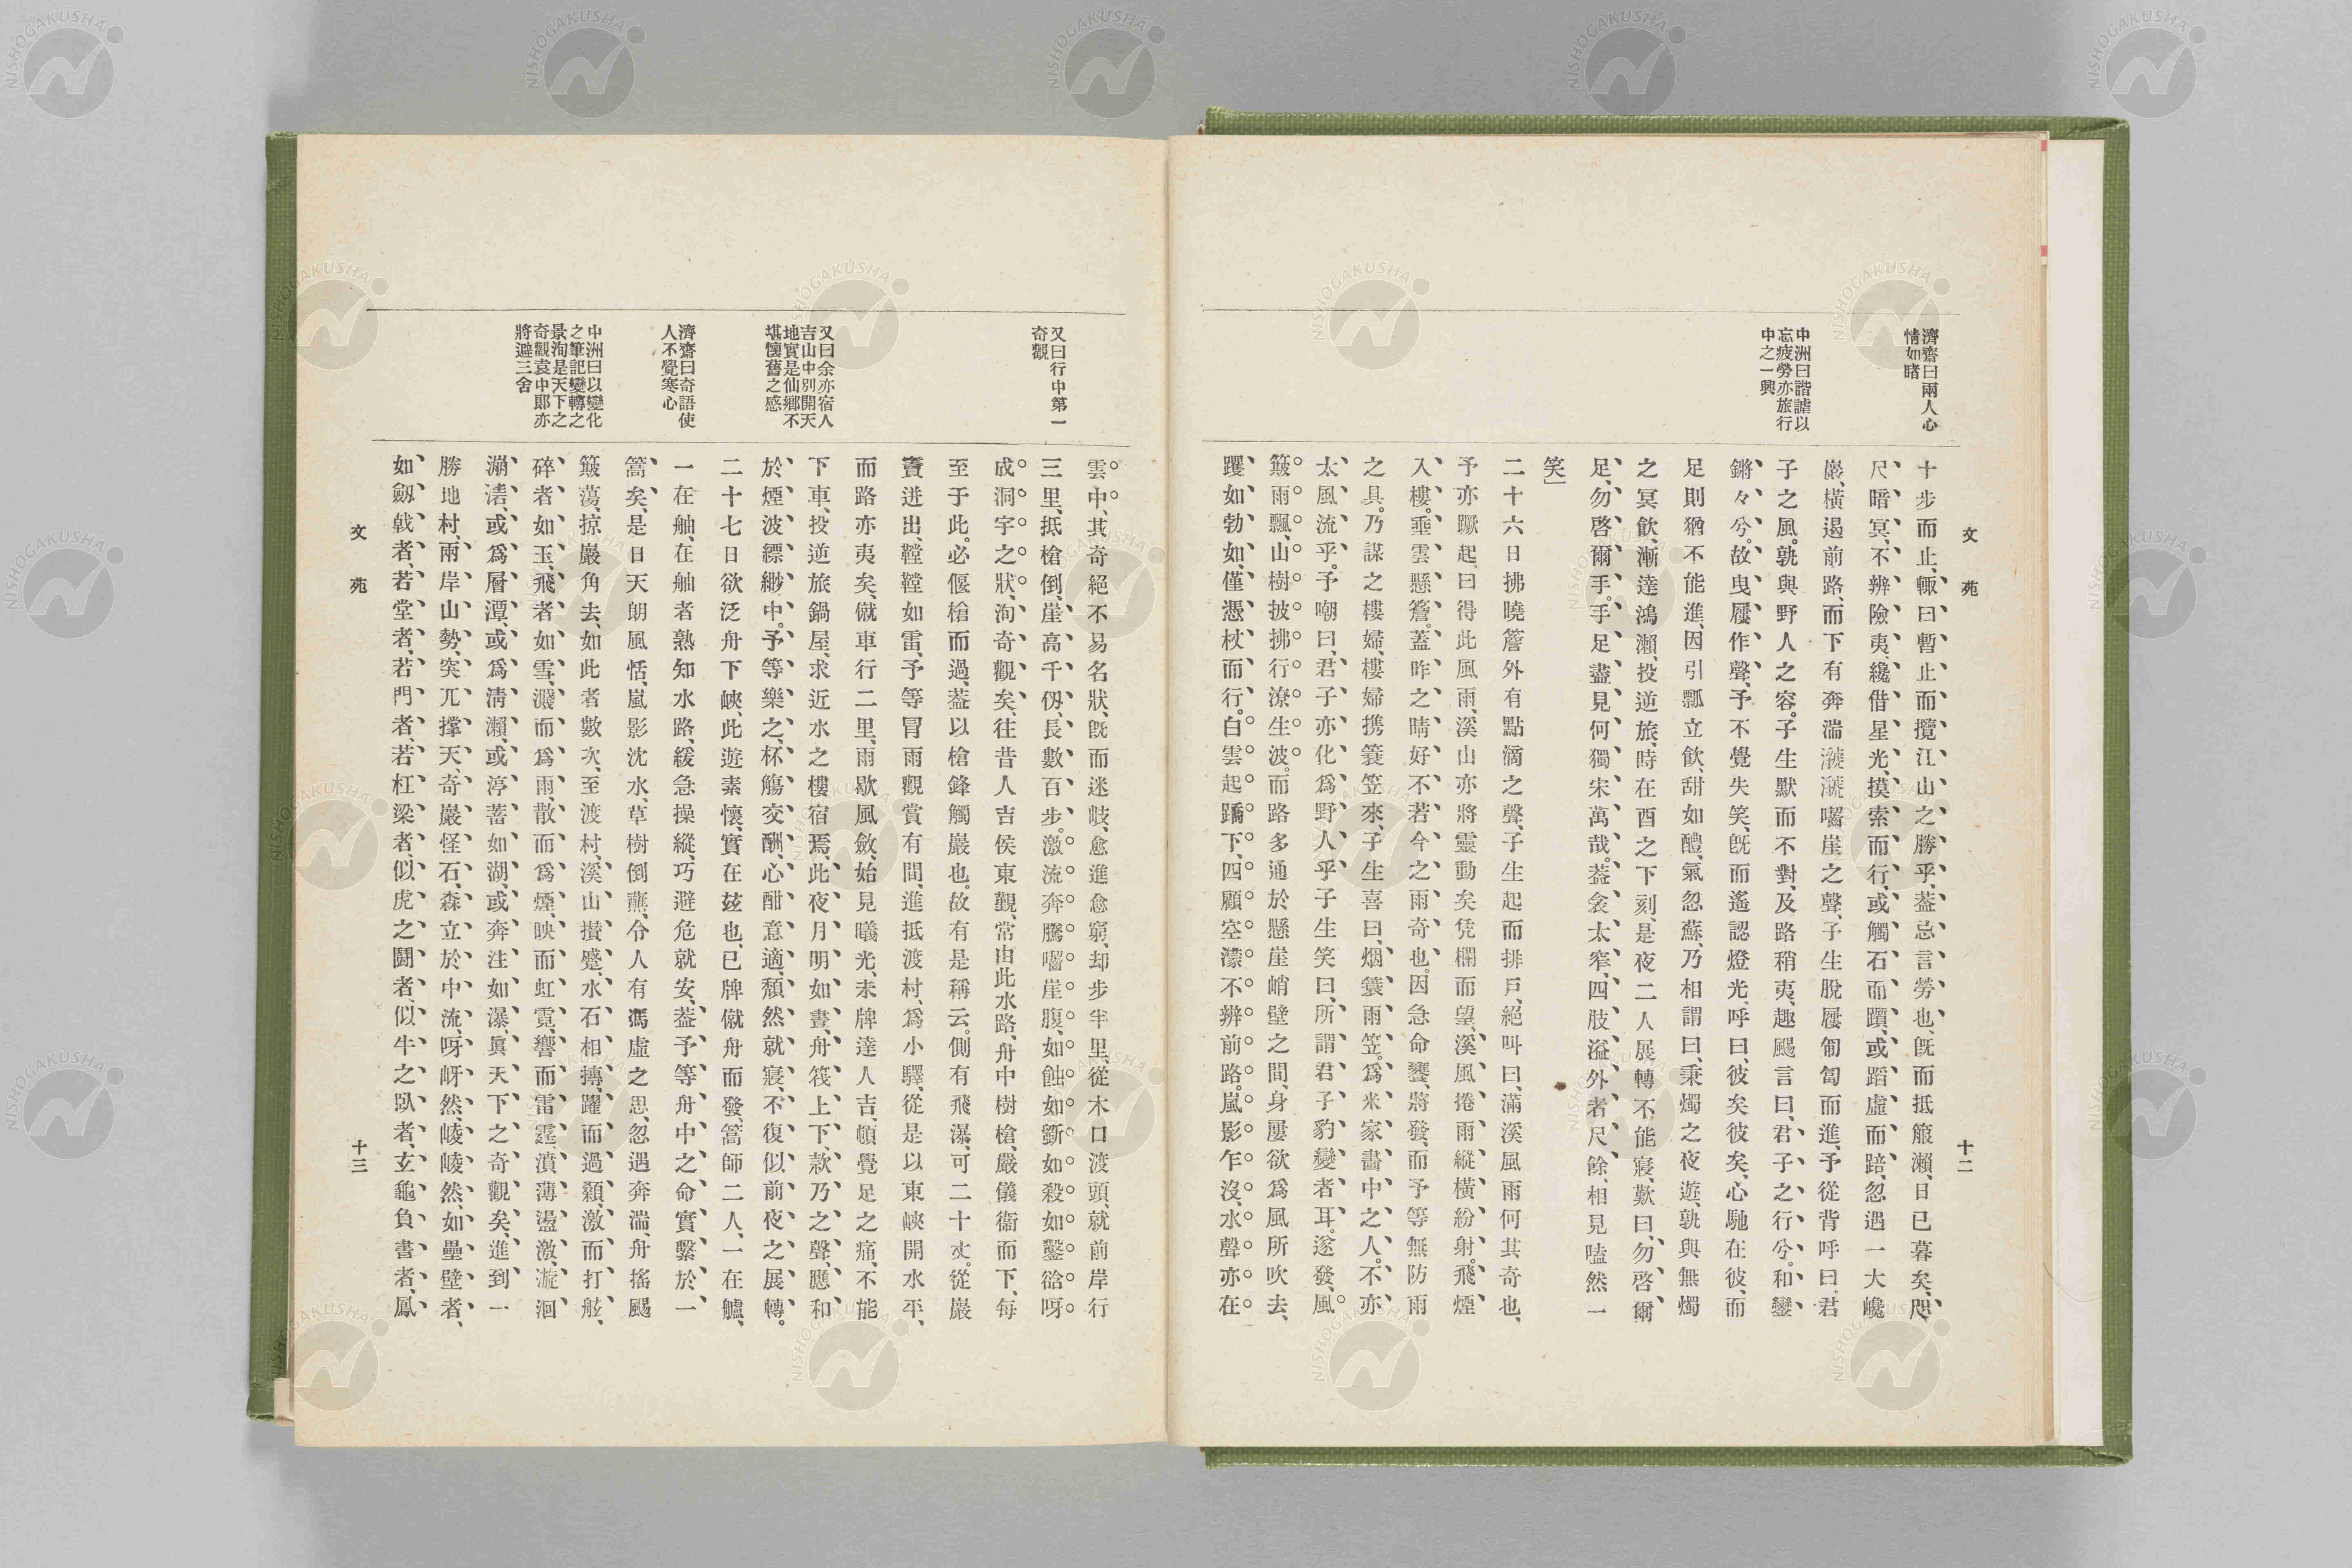 文苑
十二
濟齋曰兩人心
情如睹
中洲曰諧謔以
忘疲勞亦旅行
中之一興
十步而止、輙曰暫止而攬江山之勝乎、葢忌言勞也、既而抵籏瀨、日已暮矣、咫
尺暗冥、不辨險夷、纔借星光、摸索而行、或觸石而躓、或蹈虛而踣、忽遇一大巉
巖、橫遏前路、而下有奔湍㶁㶁囓崖之聲、子生脫屨匍匐而進、予從背呼曰、君
子之風。孰與野人之容。子生默而不對、及路稍夷、趣颺言曰、君子之行兮。和鑾
鏘々兮。故曳屨作聲、予不覺失笑、既而遙認燈光、呼曰、彼矣彼矣、心馳在彼、而
足則猶不能進、因引瓢立飲、甜如醴、氣忽蘇、乃相謂曰、秉燭之夜遊、孰與無燭
之冥飮、漸達鴻瀨、投逆旅、時在酉之下刻、是夜二人展轉不能寢、歎曰、勿啓爾
足、勿啓爾手。手足盡見何獨宋萬哉。葢衾太窄、四肢溢外者尺餘、相見嗑然一
笑」
二十六日拂曉簷外有點滴之聲、子生起而排戶、絕叫曰、滿溪風雨何其奇也、
予亦蹶起、曰得此風雨、溪山亦將靈動矣凭欄而望、溪風捲雨、縱橫紛射。飛煙
入樓。垂雲懸簷。蓋昨之晴好不若今之雨奇也。因急命饔、將發、而予等無防雨
之具。乃謀之樓婦、樓婦携簑笠來、子生喜曰、烟簑雨笠。爲米家畵中之人。不亦
太風流乎。予嘲曰、君子亦化爲野人乎子生笑曰、所謂君子豹變者耳。遂發、風
簸雨飄、山樹披拂行潦生波。而路多通於懸崖峭壁之間、身屢欲爲風所吹去、
躩如勃如、僅憑杖而行。白雲起蹻下、四顧空濛不辨前路、嵐影乍沒、水聲亦在
又曰行中第一
奇觀
又曰余亦宿人
吉山中別開天
地實是仙鄉不
堪懷舊之感
濟齋曰奇語使
人不覺寒心
中洲曰以變化
之筆記變轉之
景洵是天下之
奇觀袁中郞亦
將避三舍
雲中、其奇絕不易名狀、旣而迷岐、愈進愈窮、却步半里、從木口渡頭、就前岸行
三里、抵槍倒、崖高千仭、長數百步。激流奔騰囓崖腹、如蝕如斲如殺如鑿谽呀
成洞宇之狀、洵奇觀矣、往昔人吉侯東覲、常由此水路、舟中樹槍、嚴儀衞而下、每
至于此。必偃槍而過、葢以槍鋒觸巖也。故有是稱云。側有飛瀑、可二十丈。從巖
竇迸出、鞺鞺如雷、予等冒雨觀賞有間、進抵渡村、爲小驛、從是以東峽開水平、
而路亦夷矣、僦車行二里、雨歇風斂、始見曦光、未牌達人吉、頓覺足之痛、不能
下車、投逆旅鍋屋、求近水之樓宿焉、此夜月明如晝、舟筏上下、欵乃之聲、應和
於煙波縹緲中。予等樂之、杯觴交酬、心酣意適、頽然就寢、不復似前夜之展轉。
二十七日欲泛舟下峽、此遊素懷、實在玆也、已牌僦舟而發、篙師二人、一在艫、
一在舳、在舳者熟知水路、緩急操縱、巧避危就安、葢予等舟中之命實繫於一
篙矣、是日天朗風恬、嵐影沈水、草樹倒蘸、令人有馮虛之思、忽遇奔湍、舟搖颺
簸蕩、掠巖角去、如此者數次、至渡村、溪山攅蹙、水石相摶、躍而過顙、激而打舷、
碎者如玉、飛者如雪、濺而爲雨、散而爲煙、映而虹霓、響而雷霆、濆薄盪激、漩洄
灂渚、或爲層潭、或爲淸瀨、或渟蓄如湖、或奔注如瀑、眞天下之奇觀矣、進到一
勝地村、兩岸山勢、突兀撑天、奇巖怪石、森立於中流、呀岈然、崚崚然、如壘壁者、
如劔戟者、若堂者、若門者、若杠梁者、似虎之鬪者、似牛之臥者、玄龜負書者、鳳
文苑
十三